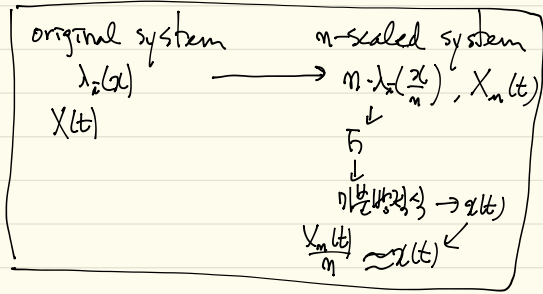 original system
n-scaled system
λ_i(x) → n·λ_i(x/n), X_n(t)
X(t)
↓
↓
미분방정식 → x(t)
X_n(t)/n ≈ x(t)